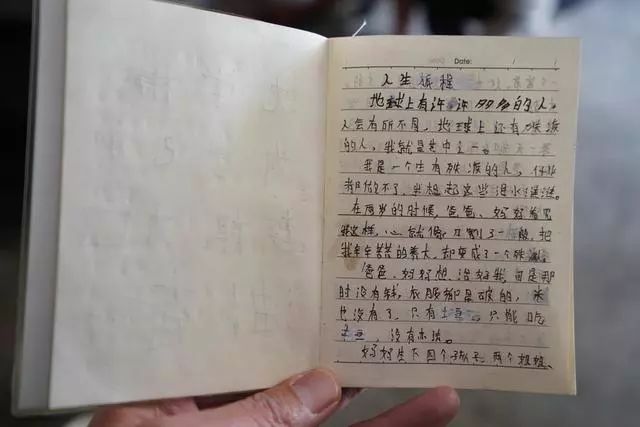 Date: / /
人生旅程
地球上有许许多多的人,
人会有所不同,地球上还有残疾
的人,我就是其中之一。
我是一个生有残疾的人,什么
都做不了,当想起这些泪水
在两岁的时候,爸爸、妈妈看见
我这样,心就像刀割了一般,把
我辛辛苦苦的养大,却变成了一个残
爸爸、妈妈想治好我,可是那
时没有钱,衣服都是破的,米
也没有了,只有土豆,只能吃
土豆,没有办法。
妈妈生下四个孩子,两个姐姐、